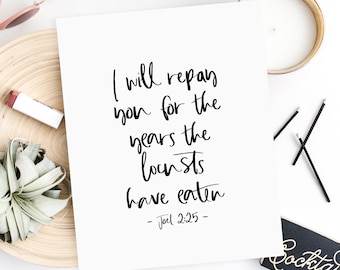 I will repay
you for the
years the
locusts
have eaten
- Joel 2:25 -
Cocktai